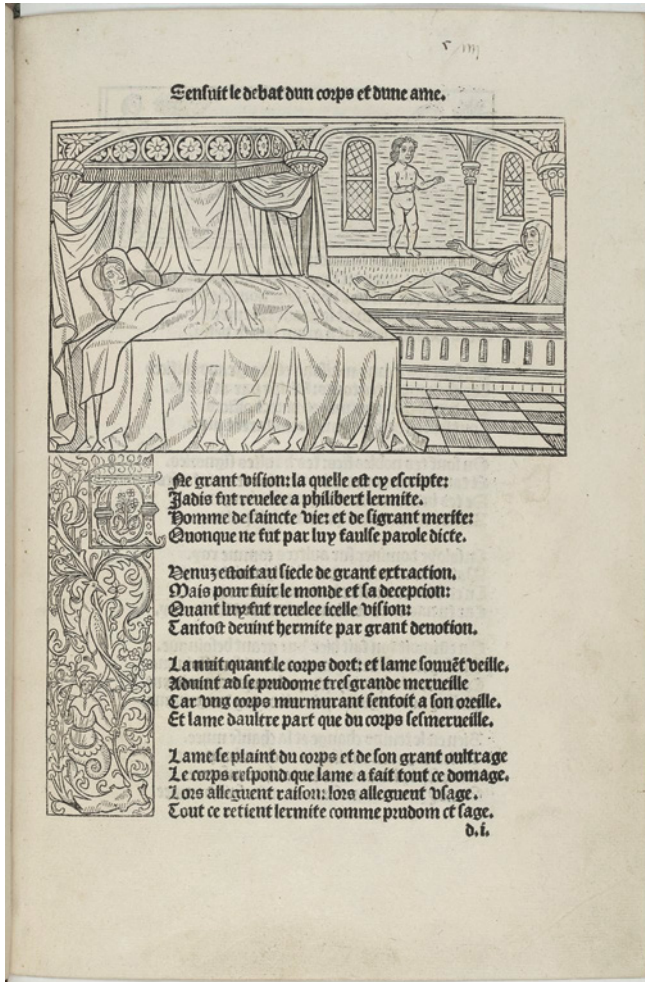 Sensuit le debat dun corps et dune ame.
UNe grant vision: la quelle est cy escripte:
Jadis fut revelee a philibert lermite.
Homme de saincte vie: et de sigrant merite:
Quonque ne fut par luy faulse parole dicte.
Venuz estoit au siecle de grant extraction.
Mais pour fuir le monde et sa decepcion:
Quant luy fut revelee icelle vision:
Tantost devint hermite par grant devotion.
La nuit quant le corps dort: et lame souuẽt veille.
Aduint ad se prudome tresgrande merueille
Car vng corps murmurant sentoit a son oreille.
Et lame daultre part que du corps sesmerueille.
Lame se plaint du corps et de son grant oultrage
Le corps respond que lame a fait tout ce domage.
Lors alleguent raison: lors alleguent vsage.
Tout ce retient lermite comme prudom et sage.
d.i.